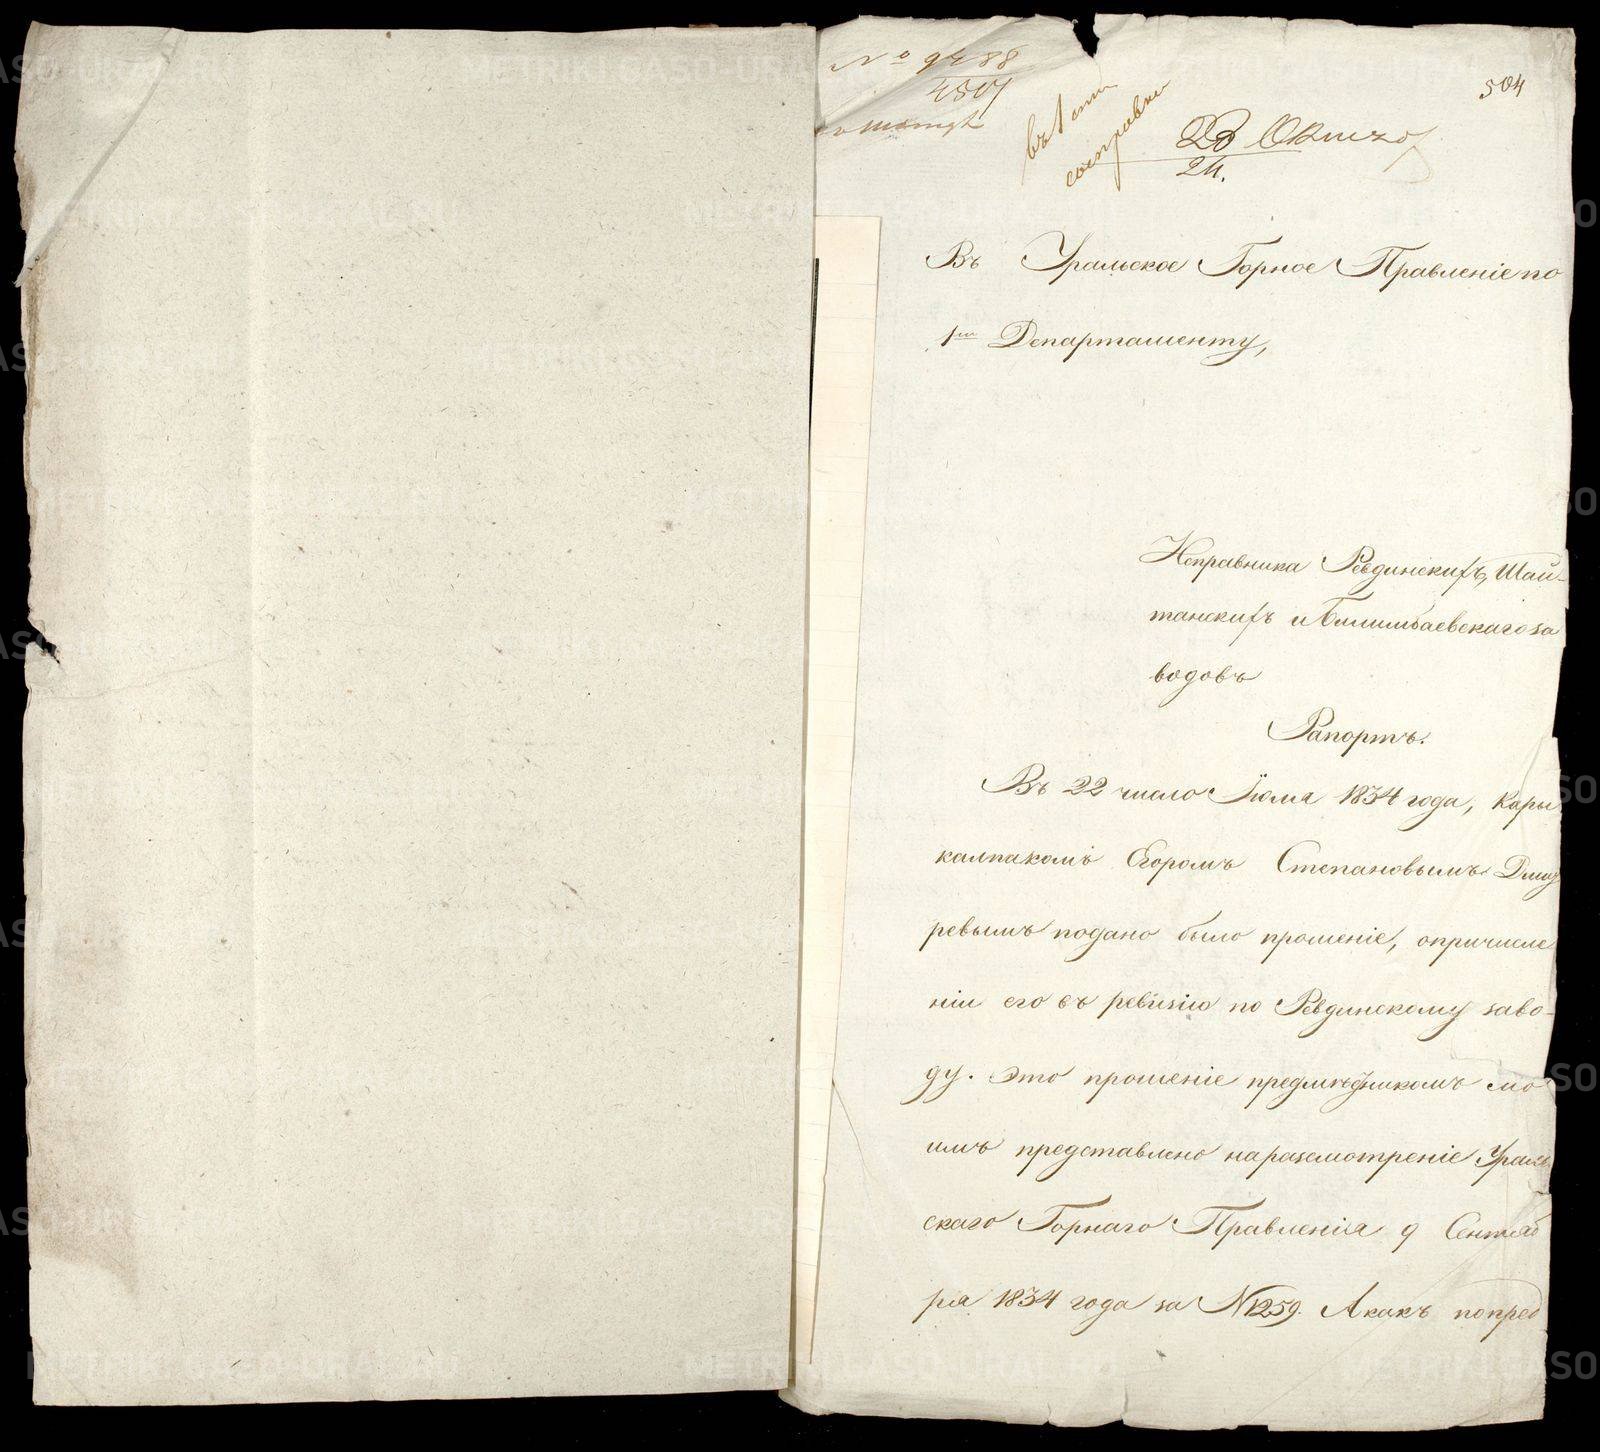 504
№ 9488
въ 1 отд
справки
23 Октяб
24.
Въ Уральское Горное Правленіе по
1му Департаменту,
Исправника Ревдинскихъ, Шай-
танскихъ и Билимбаевскаго за
водовъ
Рапортъ.
Въ 22 число Іюля 1834 года, Кары
калпакомъ Егоромъ Степановымъ
ревымъ подано было прошеніе, опричисле
ніи его въ ревизію по Ревдинскому заво-
ду. Это прошеніе предмѣстникомъ мо
имъ представлено на разсмотреніе Ураль
скаго Горнаго Правленія 9 Сентяб
ря 1834 года за №1259. А какъ по пред